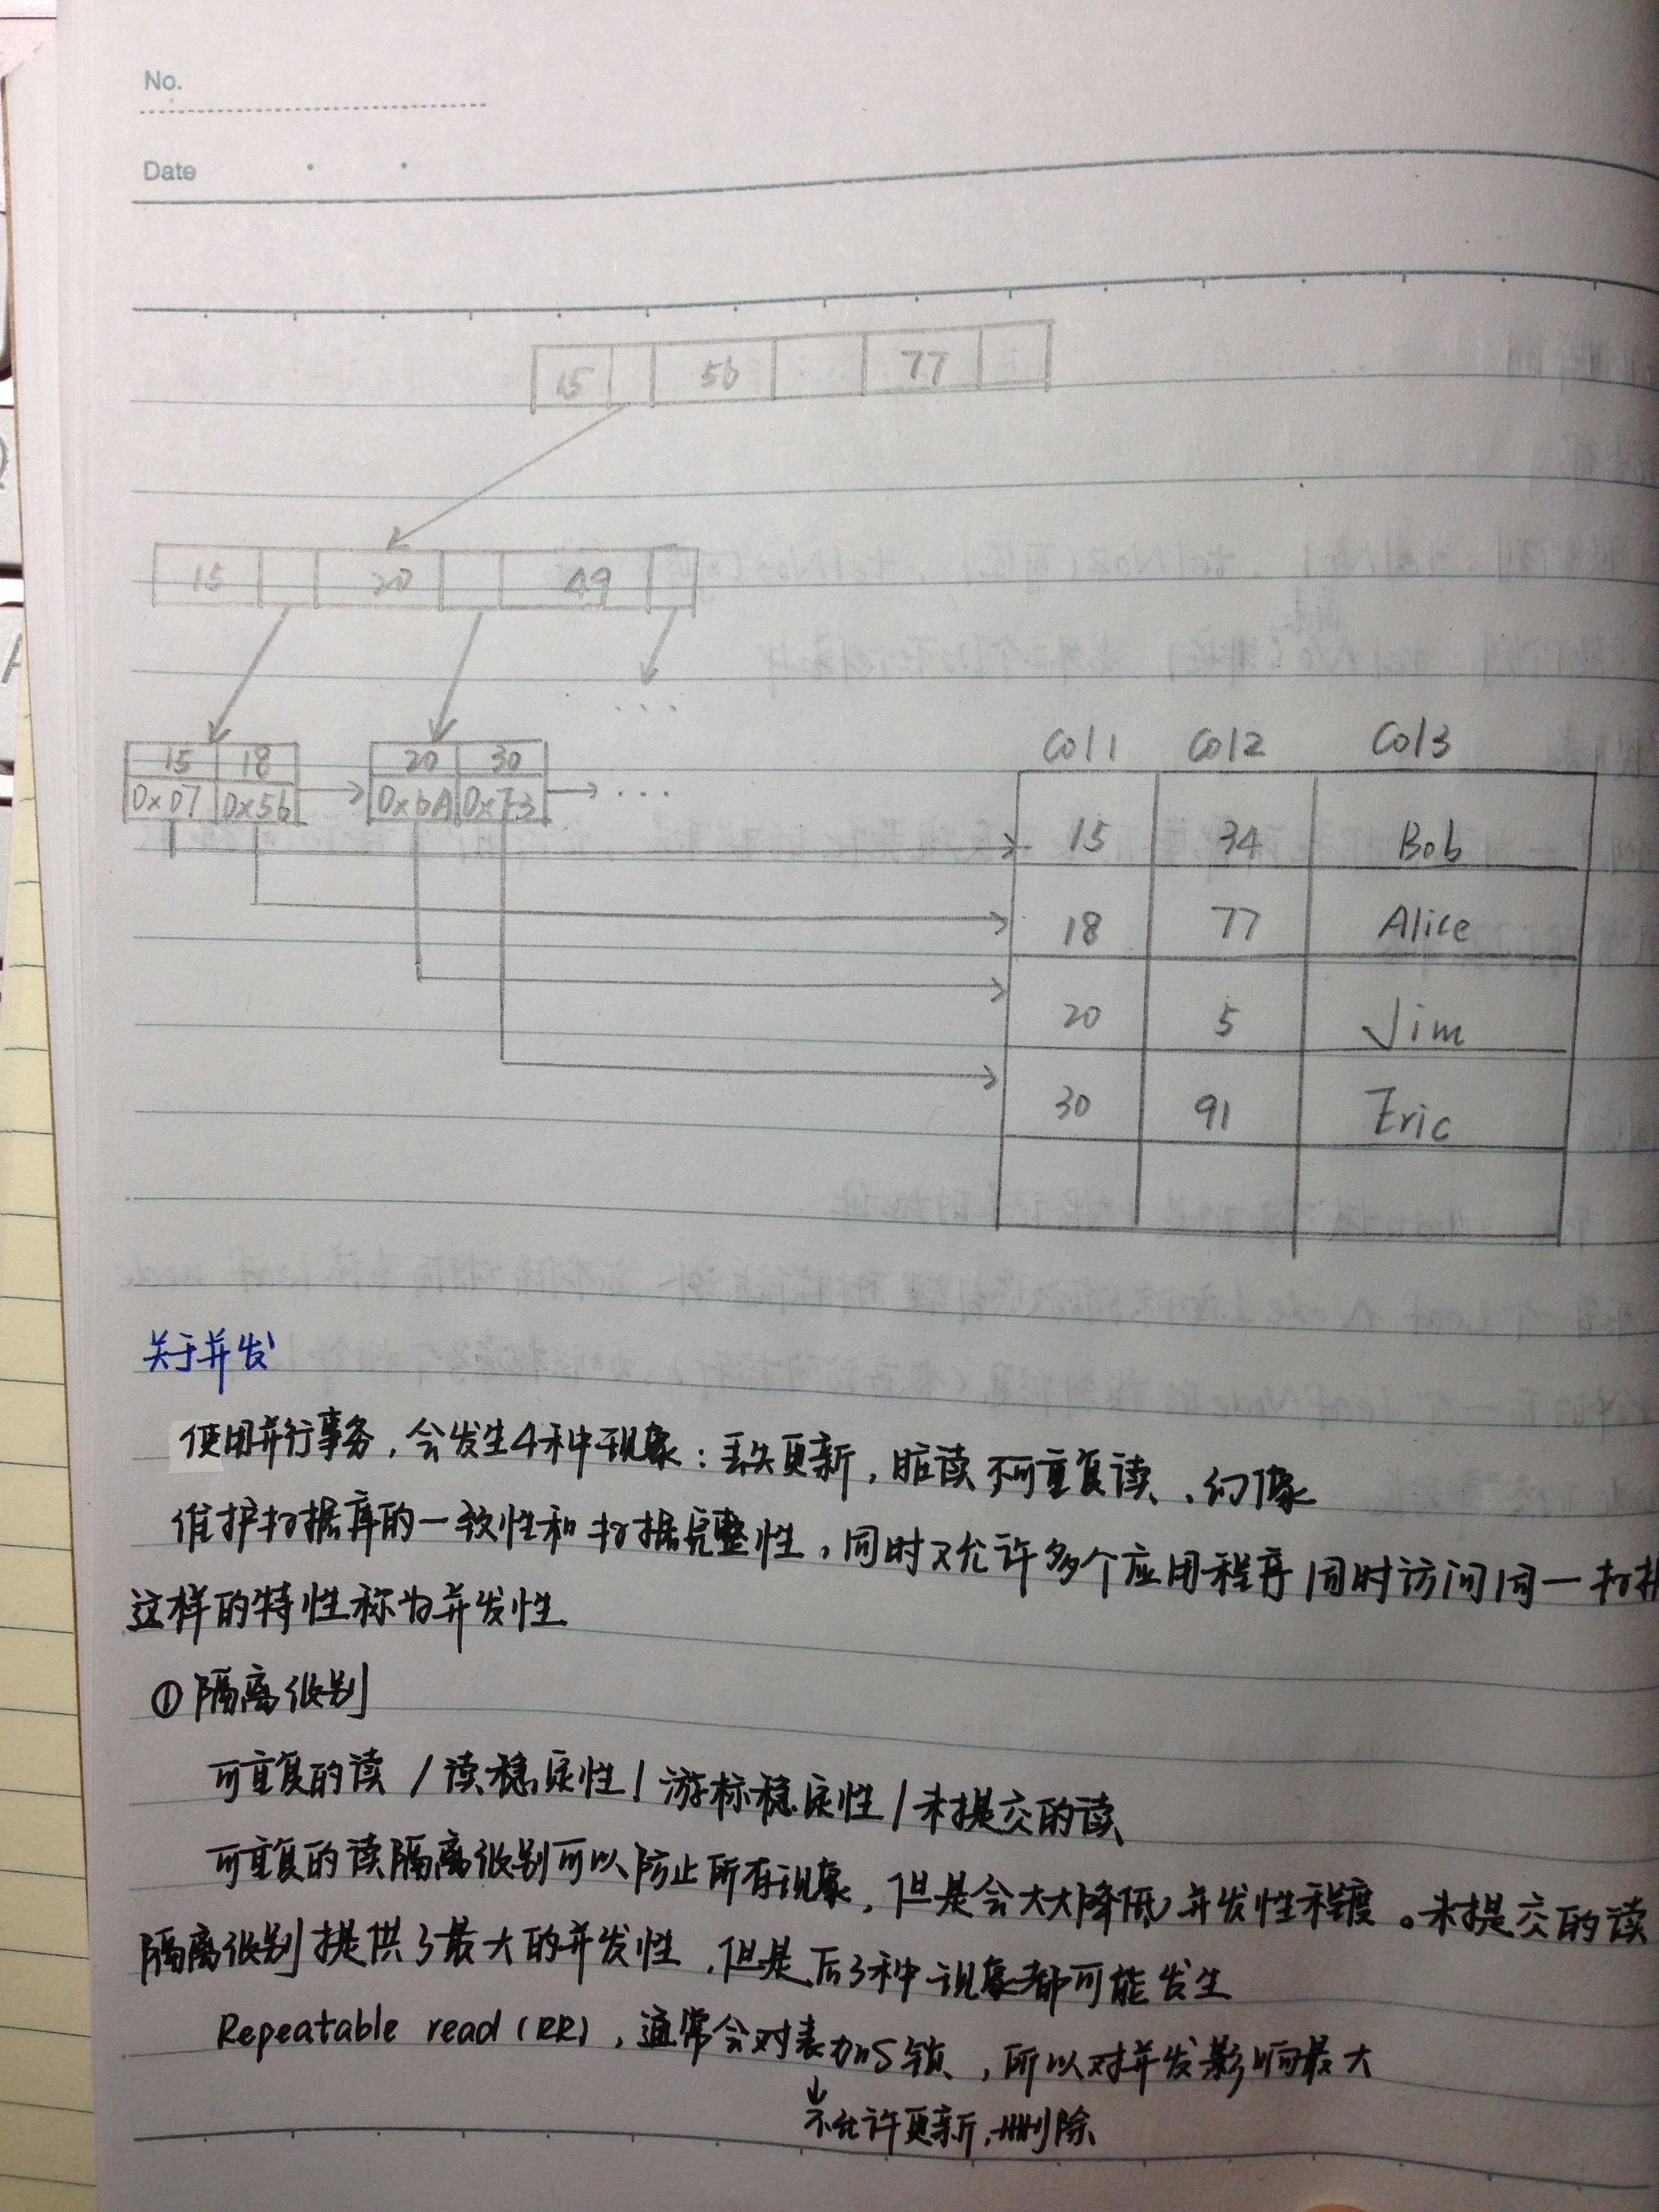 No.
Date
15 56 77
15 20 49
...
15 18 20 30
0x07 0x56 0x6A 0xF3 ...
Col1 Col2 Col3
15 34 Bob
18 77 Alice
20 5 Jim
30 91 Eric
关于并发
使用并行事务，会发生4种现象：丢失更新，脏读 不可重复读、幻像
维护数据库的一致性和数据完整性，同时又允许多个应用程序同时访问同一数据
这样的特性称为并发性
①隔离级别
可重复的读 / 读稳定性 / 游标稳定性 / 未提交的读
可重复的读隔离级别可以防止所有现象，但是会大大降低并发性程度。未提交的读
隔离级别提供了最大的并发性，但是后3种现象都可能发生
Repeatable read (RR)，通常会对表加S锁，所以对并发影响最大
不允许更新，删除